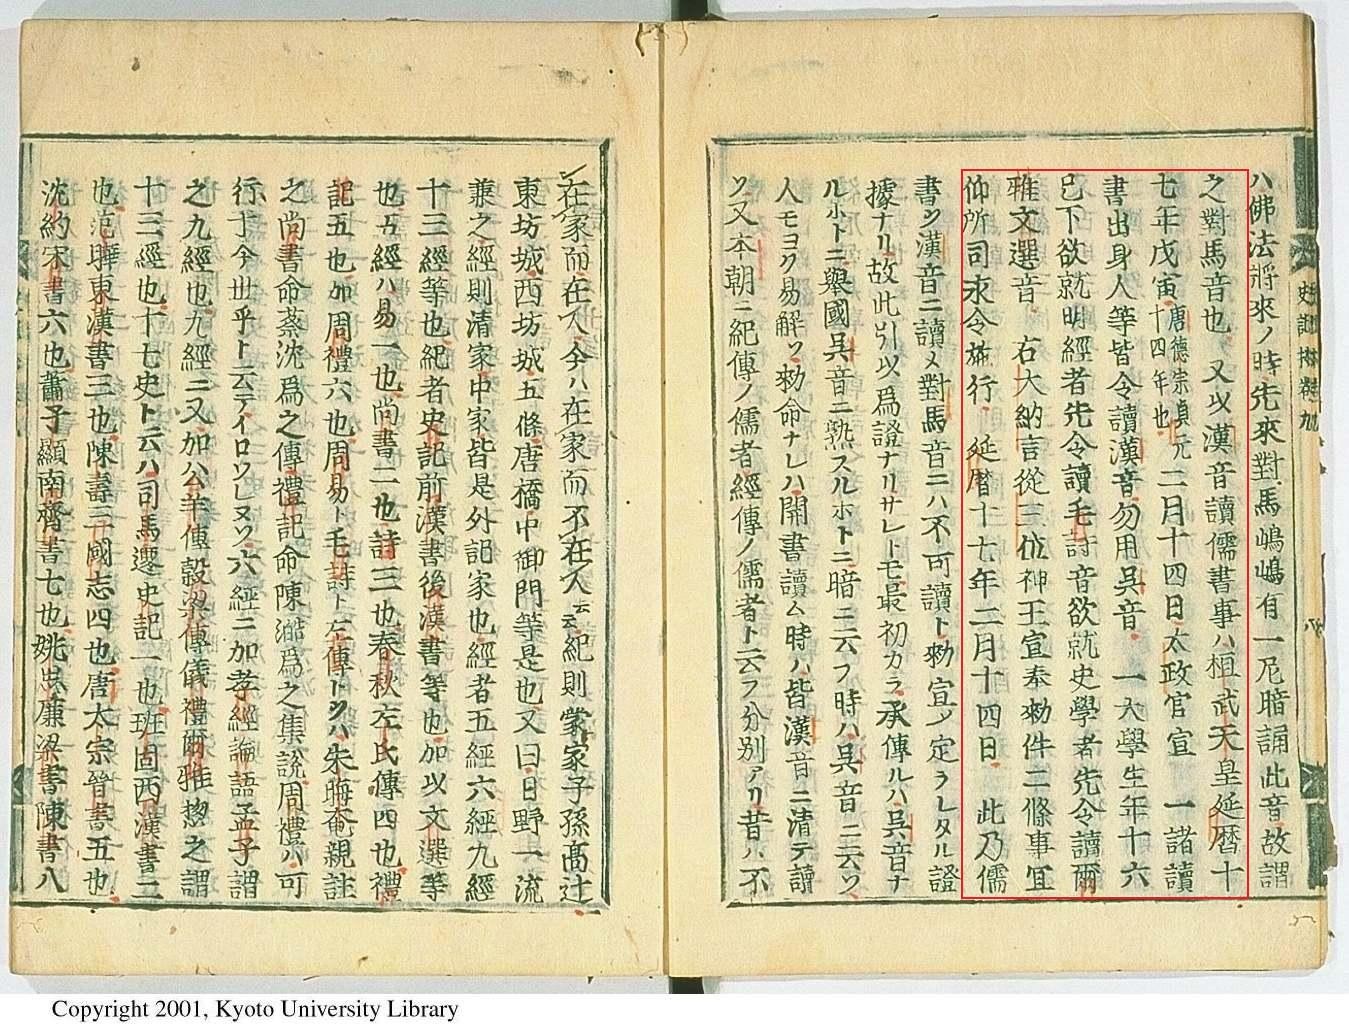 ハ佛法將來ノ時先來對馬嶋嶋有一尼暗誦此音故謂
之對馬音也 又以漢音讀儒書事ハ桓武天皇延暦十
七年戊寅唐德宗貞元十四年也二月十四日太政官宣 一諸讀
書出身人等皆令讀漢音勿用吳音 一大學生年十六
已下欲就明經者先令讀毛詩音欲就史學者先令讀爾
雅文選音 右大納言從三位神王宣奉勅件二條事宜
仰所司永令施行 延暦十七年二月十四日 此乃儒
書ヲ漢音ニ讀メ對馬音ニハ不可讀ト勅宣ノ定ラレタル證
據ナリ故此引以爲證ナリサレトモ最初カラ承傳ルハ吳音ナ
ルホトニ舉國吳音ニ熟スルホトニ暗ニ云フ時ハ吳音ニ云ソ
人モヨク易解ソ勅命ナレハ開書讀ム時ハ皆漢音ニ清テ讀
ソ又本朝ニ紀傳ノ儒者經傳ノ儒者ト云フ分別アリ昔ハ不
在家而在人今ハ在家而不在人云云紀則菅家子孫高辻
東坊城西坊城五條唐橋中御門等是也又曰日野一流
兼之經則清家中家皆是外記家也經者五經六經九經
十三經等也紀者史記前漢書後漢書等也加以文選等
也五經ハ易一也尚書二也詩三也春秋左氏傳四也禮
記五也加周禮六也周易ト毛詩ト左傳トソハ朱晦奄親註
之尚書命蔡沈爲之傳禮記命陳澔爲之集說周禮ハ可
行于今世乎ト云テイロワレヌソ六經ニ加孝經論語孟子謂
之九經也九經ニ又加公羊傳穀梁傳儀禮爾雅惣之謂
十三經也十七史ト云ハ司馬遷史記一也班固西漢書二
也范曄東漢書三也陳壽三國志四也唐太宗晉書五也
沈約宋書六也蕭子顯南齊書七也姚思廉梁書陳書八
史記抄卷九
八
Copyright 2001, Kyoto University Library